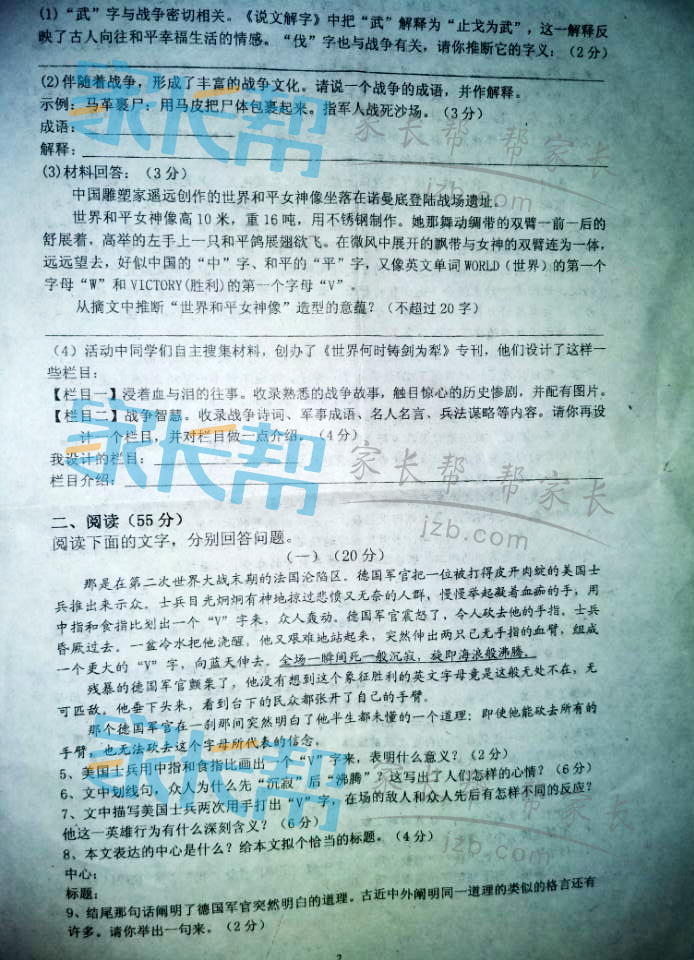 (1)“武”字与战争密切相关。《说文解字》中把“武”解释为“止戈为武”，这一解释反
映了古人向往和平幸福生活的情感。“伐”字也与战争有关，请你推断它的字义：（2分）
(2)伴随着战争，形成了丰富的战争文化。请说一个战争的成语，并作解释。
示例：马革裹尸：用马皮把尸体包裹起来。指军人战死沙场。（3分）
成语：
解释：
(3)材料回答：（3分）
中国雕塑家遥远创作的世界和平女神像坐落在诺曼底登陆战场遗址。
世界和平女神像高10米，重16吨，用不锈钢制作。她那舞动绸带的双臂一前一后的
舒展着，高举的左手上一只和平鸽展翅欲飞。在微风中展开的飘带与女神的双臂连为一体，
远远望去，好似中国的“中”字、和平的“平”字，又像英文单词WORLD（世界）的第一个
字母“W”和VICTORY(胜利)的第一个字母“V”。
从摘文中推断“世界和平女神像”造型的意蕴？（不超过20字）
（4）活动中同学们自主搜集材料，创办了《世界何时铸剑为犁》专刊，他们设计了这样一
些栏目：
【栏目一】浸着血与泪的往事。收录熟悉的战争故事，触目惊心的历史惨剧，并配有图片。
【栏目二】战争智慧。收录战争诗词、军事成语、名人名言、兵法谋略等内容。请你再设
计一个栏目，并对栏目做一点介绍。（4分）
我设计的栏目：
栏目介绍：
二、阅读（55分）
阅读下面的文字，分别回答问题。
（一）（20分）
那是在第二次世界大战末期的法国沦陷区。德国军官把一位被打得皮开肉绽的美国士
兵推出来示众。士兵目光炯炯有神地掠过悲愤又无奈的人群，慢慢举起凝着血痂的手，用
中指和食指比划出一个“V”字来，众人轰动。德国军官震怒了，令人砍去他的手指。士兵
昏厥过去。一盆冷水把他浇醒，他又艰难地站起来，突然伸出两只已无手指的血臂，组成
一个更大的“V”字，向蓝天伸去。全场一瞬间死一般沉寂，旋即海浪般沸腾。
残暴的德国军官颤栗了，他没有想到这个象征胜利的英文字母竟是这般无处不在，无
可匹敌。他垂下头来，看到台下的民众都张开了自己的手臂。
那个德国军官在一刹那间突然明白了他半生都未懂的一个道理：即使他能砍去所有的
手臂，也无法砍去这个字母所代表的信念。
5、美国士兵用中指和食指比画出一个“V”字来，表明什么意义？（2分）
6、文中划线句，众人为什么先“沉寂”后“沸腾”？这写出了人们怎样的心情？（6分）
7、文中描写美国士兵两次用手打出“V”字，在场的敌人和众人先后有怎样不同的反应？
他这一英雄行为有什么深刻含义？（6分）
8、本文表达的中心是什么？给本文拟个恰当的标题。（4分）
中心：
标题：
9、结尾那句话阐明了德国军官突然明白的道理。古近中外阐明同一道理的类似的格言还有
许多。请你举出一句来。（2分）
2
家长帮
家长帮 帮家长
jzb.com
家长帮
家长帮 帮家长
jzb.com
家长帮
家长帮 帮家长
jzb.com